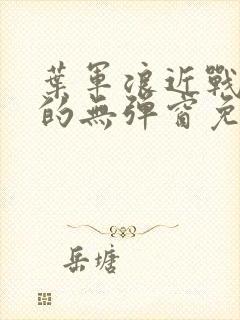 葉軍浪近戰
的無彈窗免
岳塘